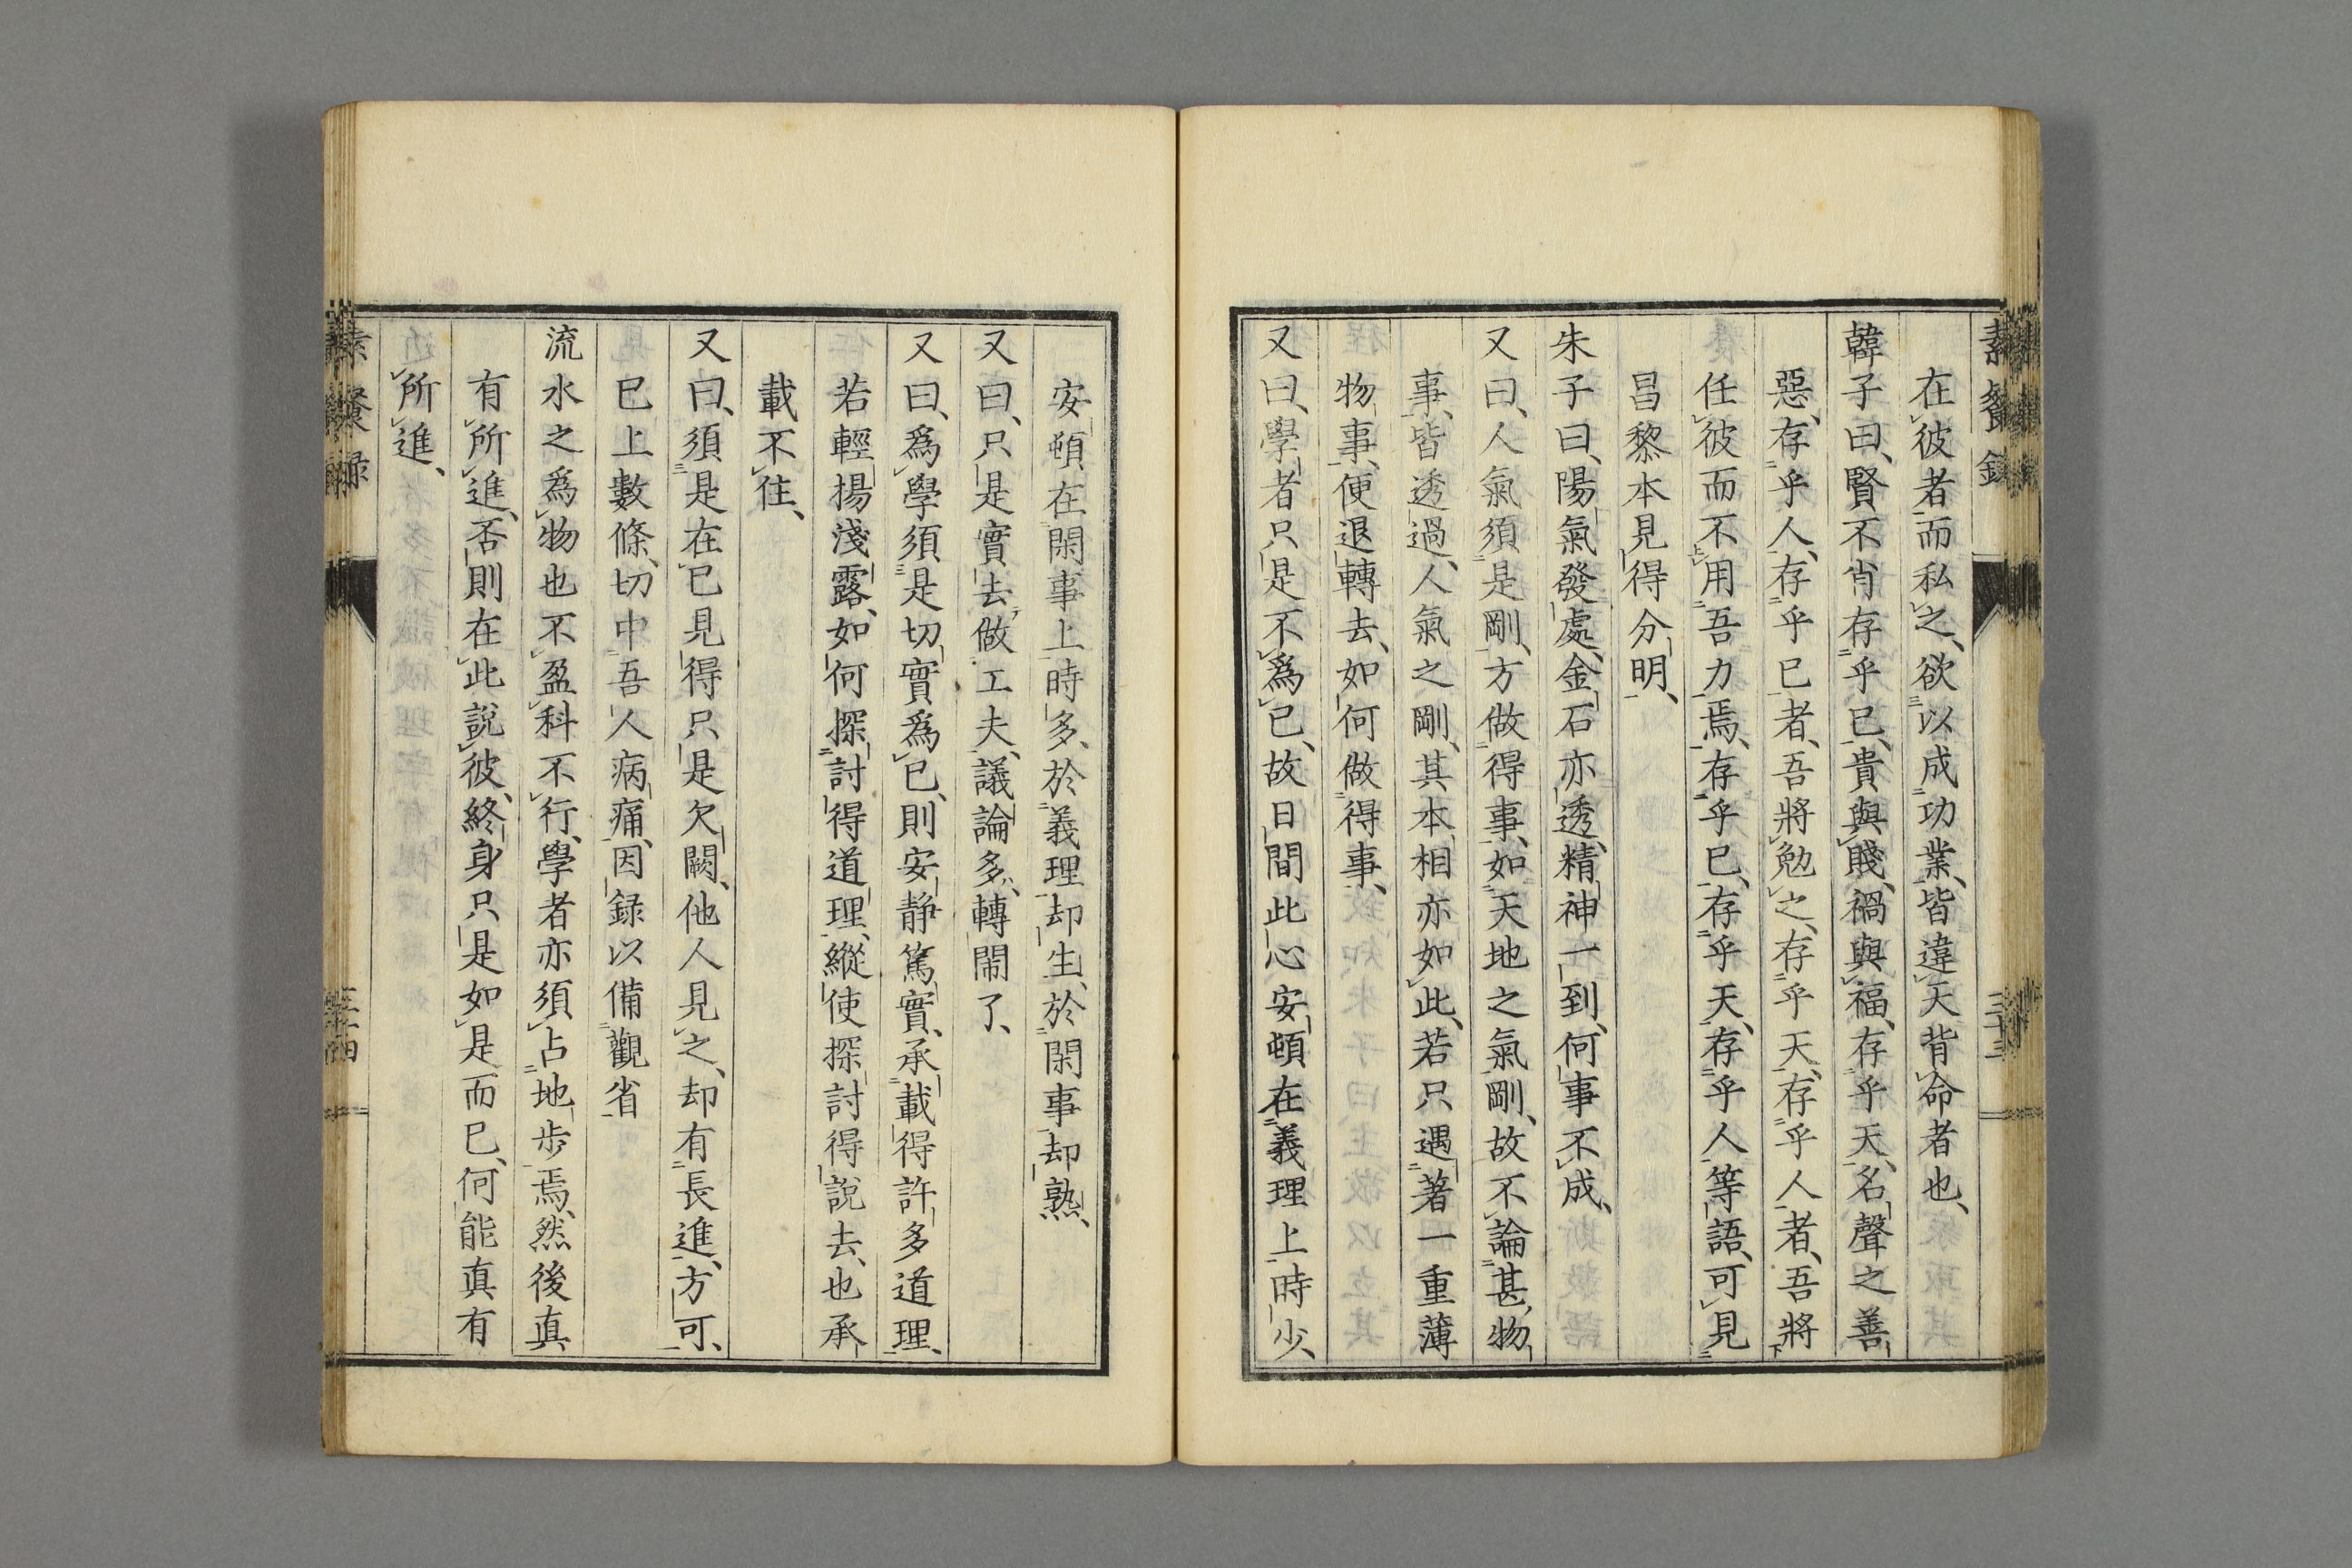 素餐録
三十三
在彼者而私之、欲以成功業、皆違天背命者也、
韓子曰、賢不肖存乎已、貴與賤、禍與福、存乎天、名聲之善
惡、存乎人、存乎已者、吾將勉之、存乎天、存乎人者、吾將
任彼而不用吾力焉、存乎已、存乎天、存乎人等語、可見
昌黎本見得分明、
朱子曰、陽氣發處、金石亦透、精神一到、何事不成、
又曰、人氣須是剛、方做得事、如天地之氣剛、故不論甚物
事、皆透過、人氣之剛、其本相亦如此、若只遇著一重薄
物事、便退轉去、如何做得事、
又曰、學者只是不爲已、故日間此心安頓在義理上時少、
安頓在閑事上時多、於義理却生、於閑事却熟、
又曰、只是實去做工夫、議論多、轉鬧了、
又曰、爲學須是切實爲已、則安静篤實、承載得許多道理、
若輕揚淺露、如何探討得道理、縱使探討得說去、也承
載不住、
又曰、須是在已見得只是欠闕、他人見之、却有長進、方可、
已上數條、切中吾人病痛、因録以備觀省
流水之爲物也不盈科不行、學者亦須占地步焉、然後眞
有所進、否則在此說彼、終身只是如是而已、何能眞有
所進、
素餐録
三十四